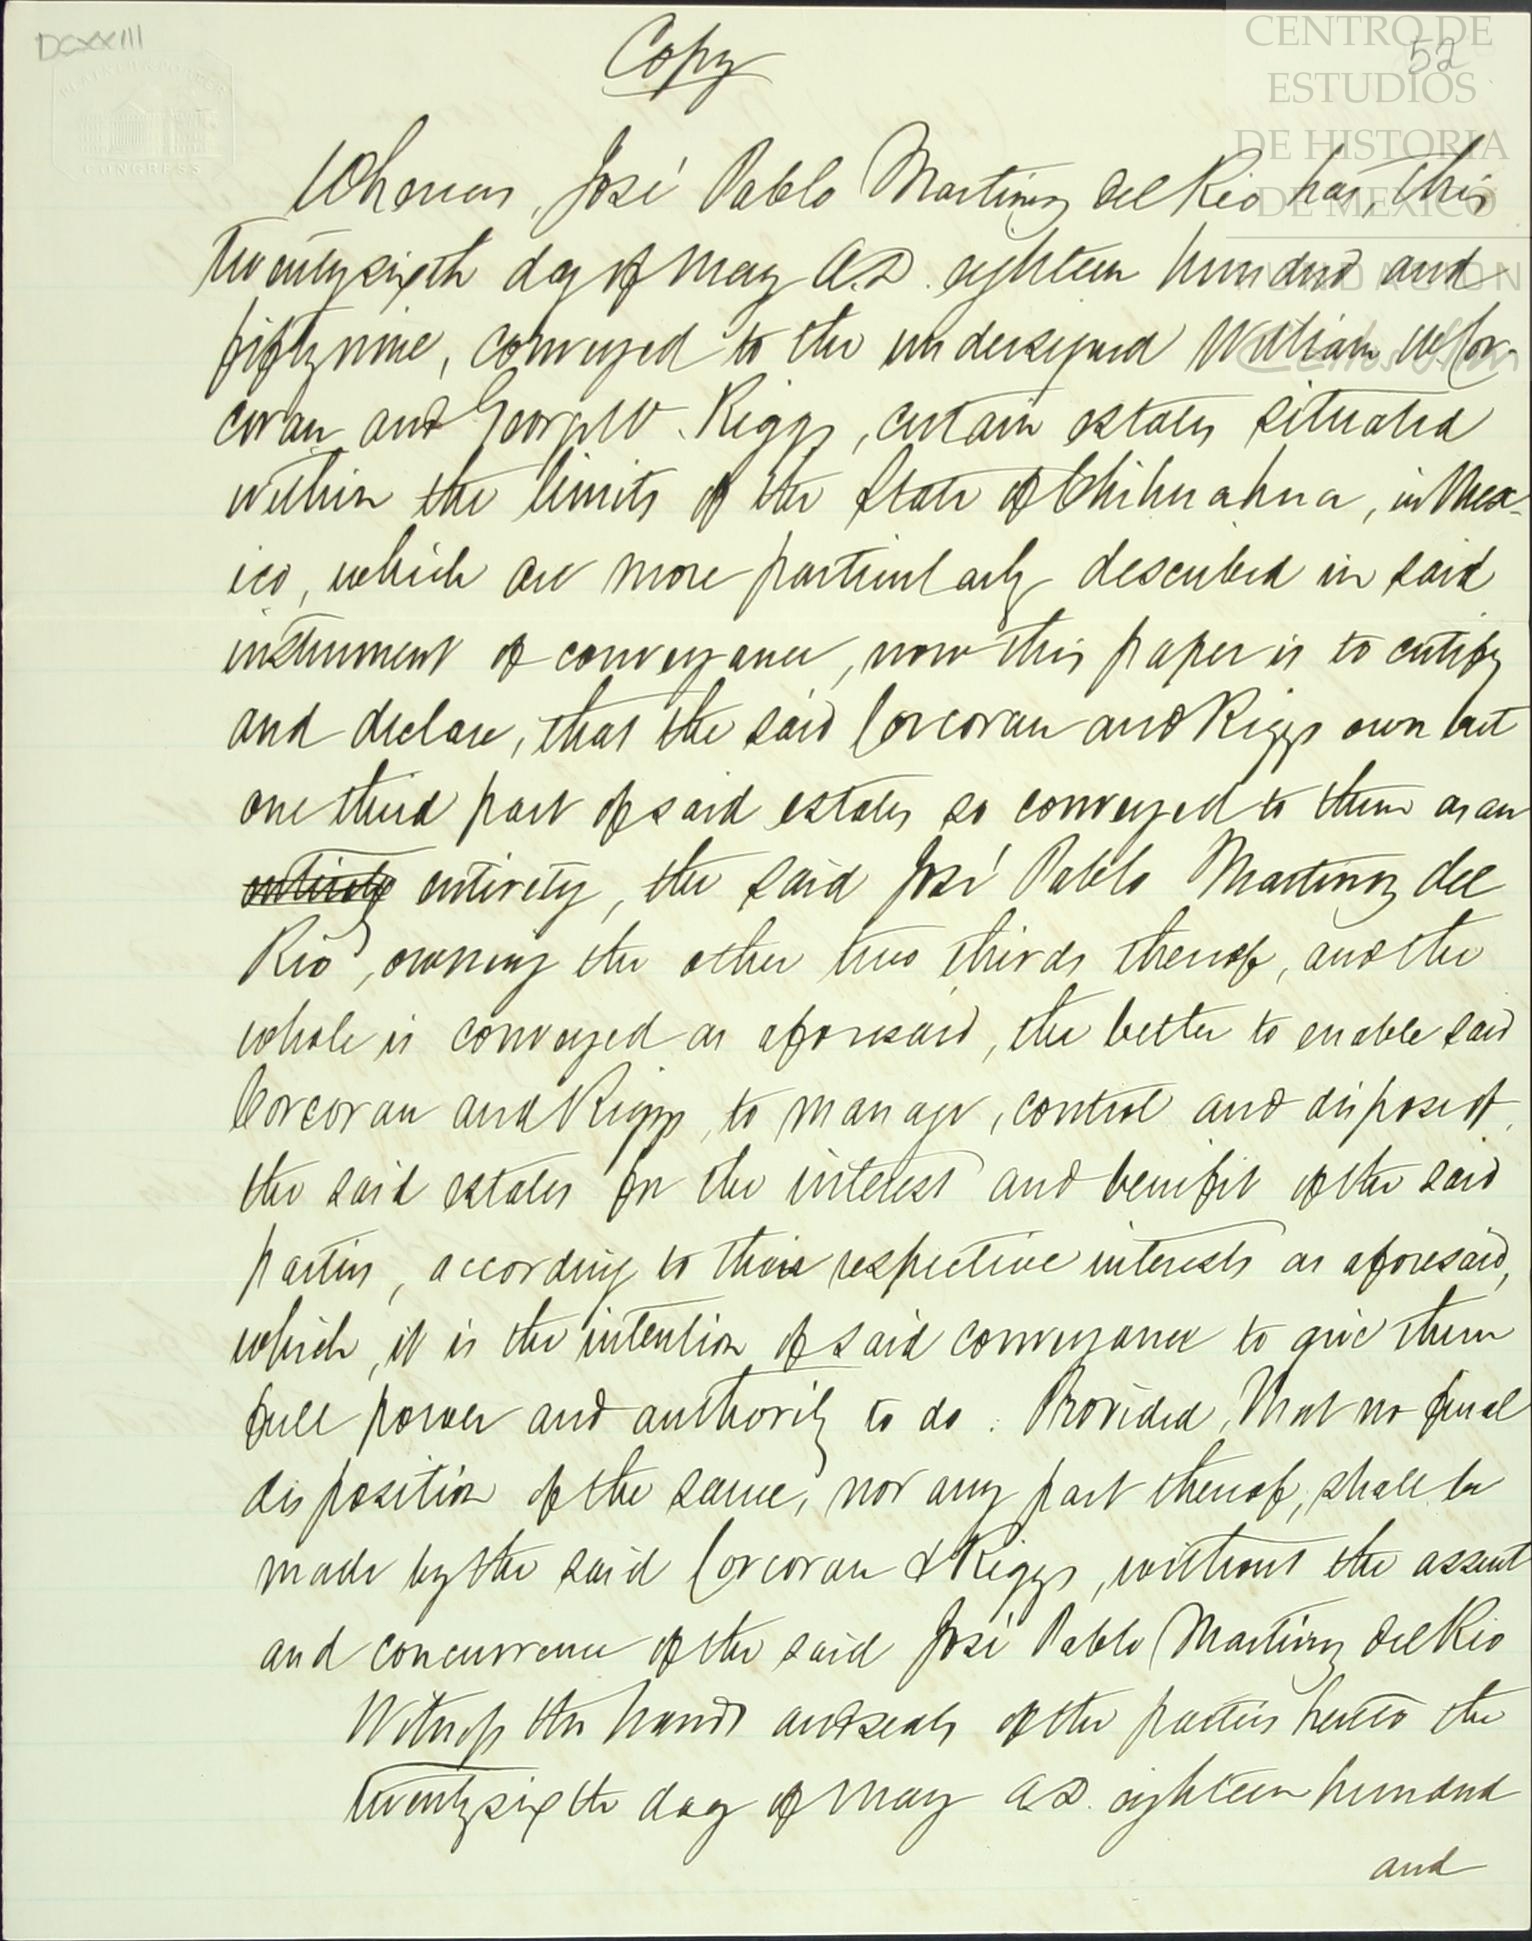 DCXXIII
Copy
52
CENTRO DE
ESTUDIOS
DE HISTORIA
DE MEXICO
FUNDACION
CONGRESS
Whereas, José Pablo Martinez del Rio has, this
twentysixth day of May A.D. eighteen hundred and
fiftynine, conveyed to the undersigned William W Cor-
coran and George W. Riggs, certain estates situated
within the limits of the State of Chihuahua, in Mex-
ico, which are more particularly described in said
instrument of conveyance, now this paper is to certify
and declare, that the said Corcoran and Riggs own but
one third part of said estates so conveyed to them as an
entirety, the said José Pablo Martinez del
Rio, owning the other two thirds thereof, and the
whole is conveyed as aforesaid, the better to enable said
Corcoran and Riggs, to manage, control and dispose of,
the said estates for the interest and benefit of the said
parties, according to their respective interests as aforesaid,
which, it is the intention of said conveyance to give them
full power and authority to do. Provided, that no final
disposition of the same, nor any part thereof, shall be
made by the said Corcoran & Riggs, without the assent
and concurrence of the said José Pablo Martinez del Rio
Witness the hands and seals of the parties hereto the
twentysixth day of May A.D. eighteen hundred
and